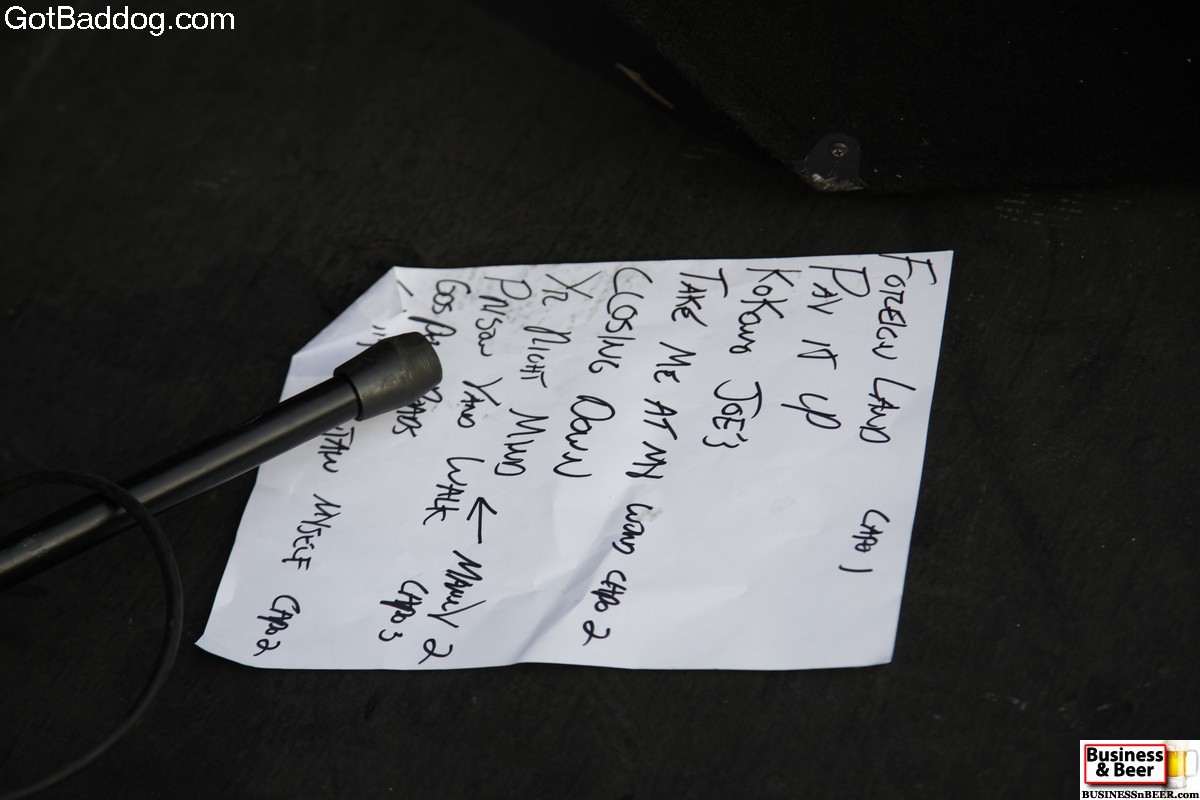 GotBaddog.com
FOREIGN LAND CAPO 1
PAY IT UP
KOKOMO JOE'S
TAKE ME AT MY WORD CAPO 2
CLOSING DOWN
YR RIGHT MIND
PRISON YARD WALK ← MANLY 2
CAPO 3
MYSELF CAPO 2
Business
& Beer
BUSINESSnBEER.com